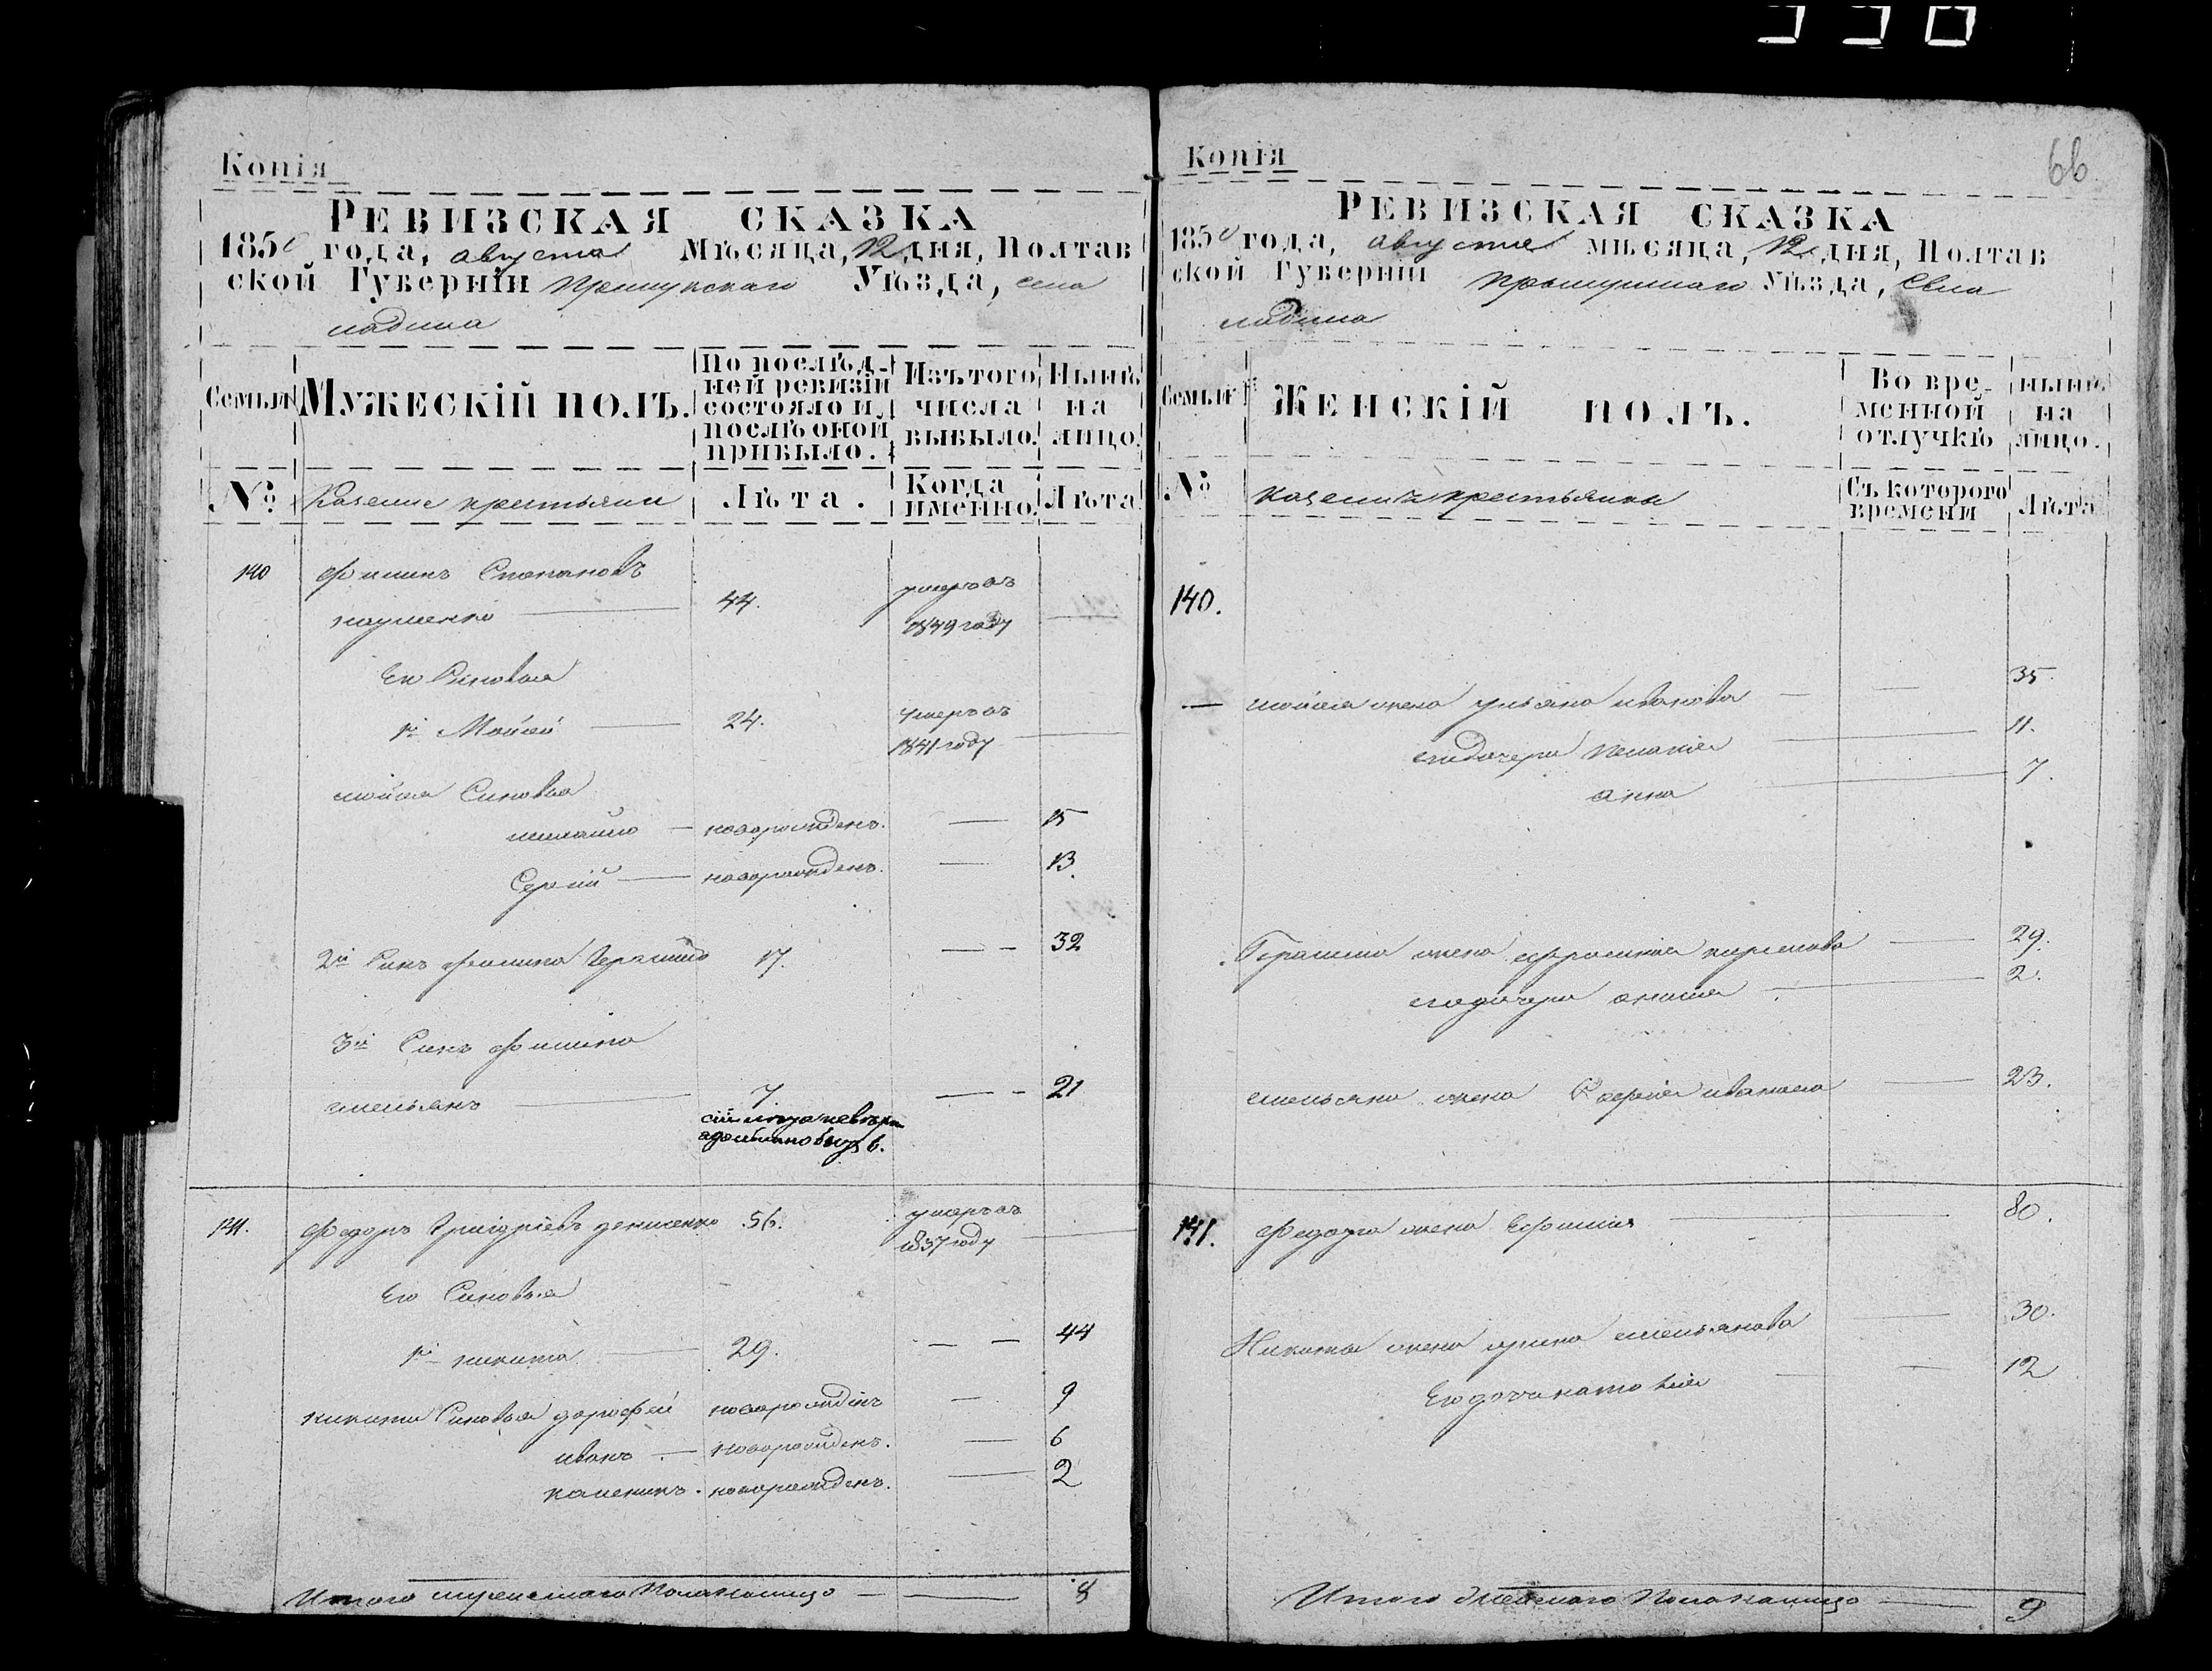 Копія
РЕВИЗСКАЯ СКАЗКА
1850 года, августа Мѣсяца, 12 дня, Полтав
ской Губерніи Прилукскаго Уѣзда, села
ладина
Семьи
МУЖЕСКІЙ ПОЛЪ.
По послѣд-
ней ревизіи
состояло и
послѣ оной
прибыло.
Изъ того
числа
выбыло.
Нынѣ
на
лицо.
№
Казение крестьяни
Лѣта.
Когда
именно.
Лѣта
140 Филипъ Степановъ
науменко 44. умеръ въ
1849 году
Его Синовья
1й Мойсей 24. умеръ въ
1841 году
мойсея Синовья
михайло новорожденъ. 15
Сергій новорожденъ. 13.
2й Синъ филипа Герасимъ 17. 32
3й Синъ филипа
емельянъ 7. 21
141. Федоръ Григоріевъ денисенко 56. умеръ въ
1837 году
Его Синовья
1й никита 29. 44
никити Синовья дорофей новорожденъ 9
иванъ новорожденъ. 6
каленикъ. новорожденъ. 2
Итого мужескаго Пола налицо 8
Копія
66
РЕВИЗСКАЯ СКАЗКА
1850 года, августа мѣсяца, 12 дня, Полтав
ской Губерніи Прилукскаго Уѣзда, Села
ладина
Семьи
ЖЕНСКІЙ ПОЛЪ.
Во вре-
менной
отлучкѣ
нынѣ
на
лицо.
№
Съ которого
времени
Лѣта
140.
мойсея жена ульяна иванова 35.
его дочери пелагія 11.
анна 7.
Герасима жена ефросинія 29.
его дочери 2.
емельяна жена иванова 23.
141. Федора жена Ефимія 80.
Никити жена ирина емельянова 30.
Его дочь наталія 12
Итого женскаго Пола налицо 9